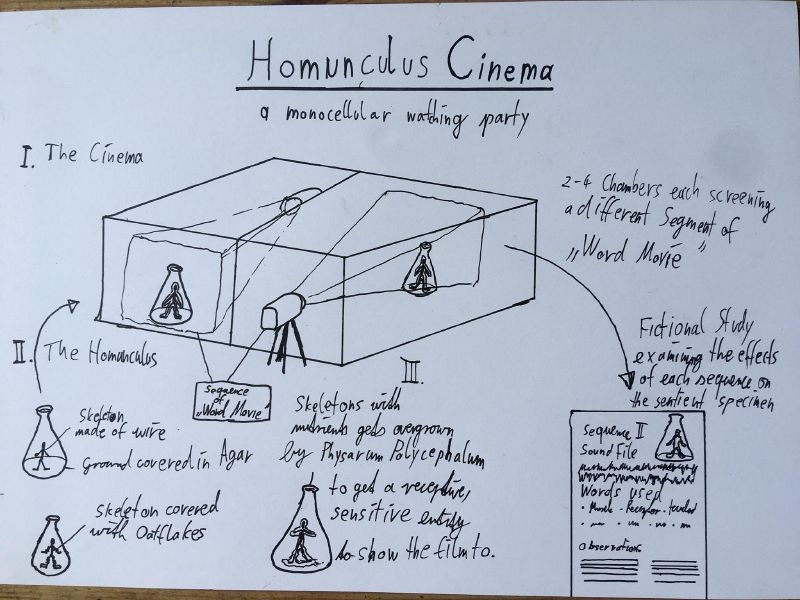 Homunculus Cinema
a monocellular watching party
I. The Cinema
2-4 Chambers each screening
a different Segment of
„Word Movie"
II. The Homunculus
Skeleton
made of wire
ground covered in Agar
Skeleton covered
with Oatflakes
Sequence
of
„Word Movie"
III.
Skeletons with
nutrients gets overgrown
by Physarum Polycephalum
to get a receptive,
sensitive entity
to show the film to.
Fictional Study
examining the effects
of each sequence on
the sentient specimen
Sequence II
Sound File
Words used
Observations